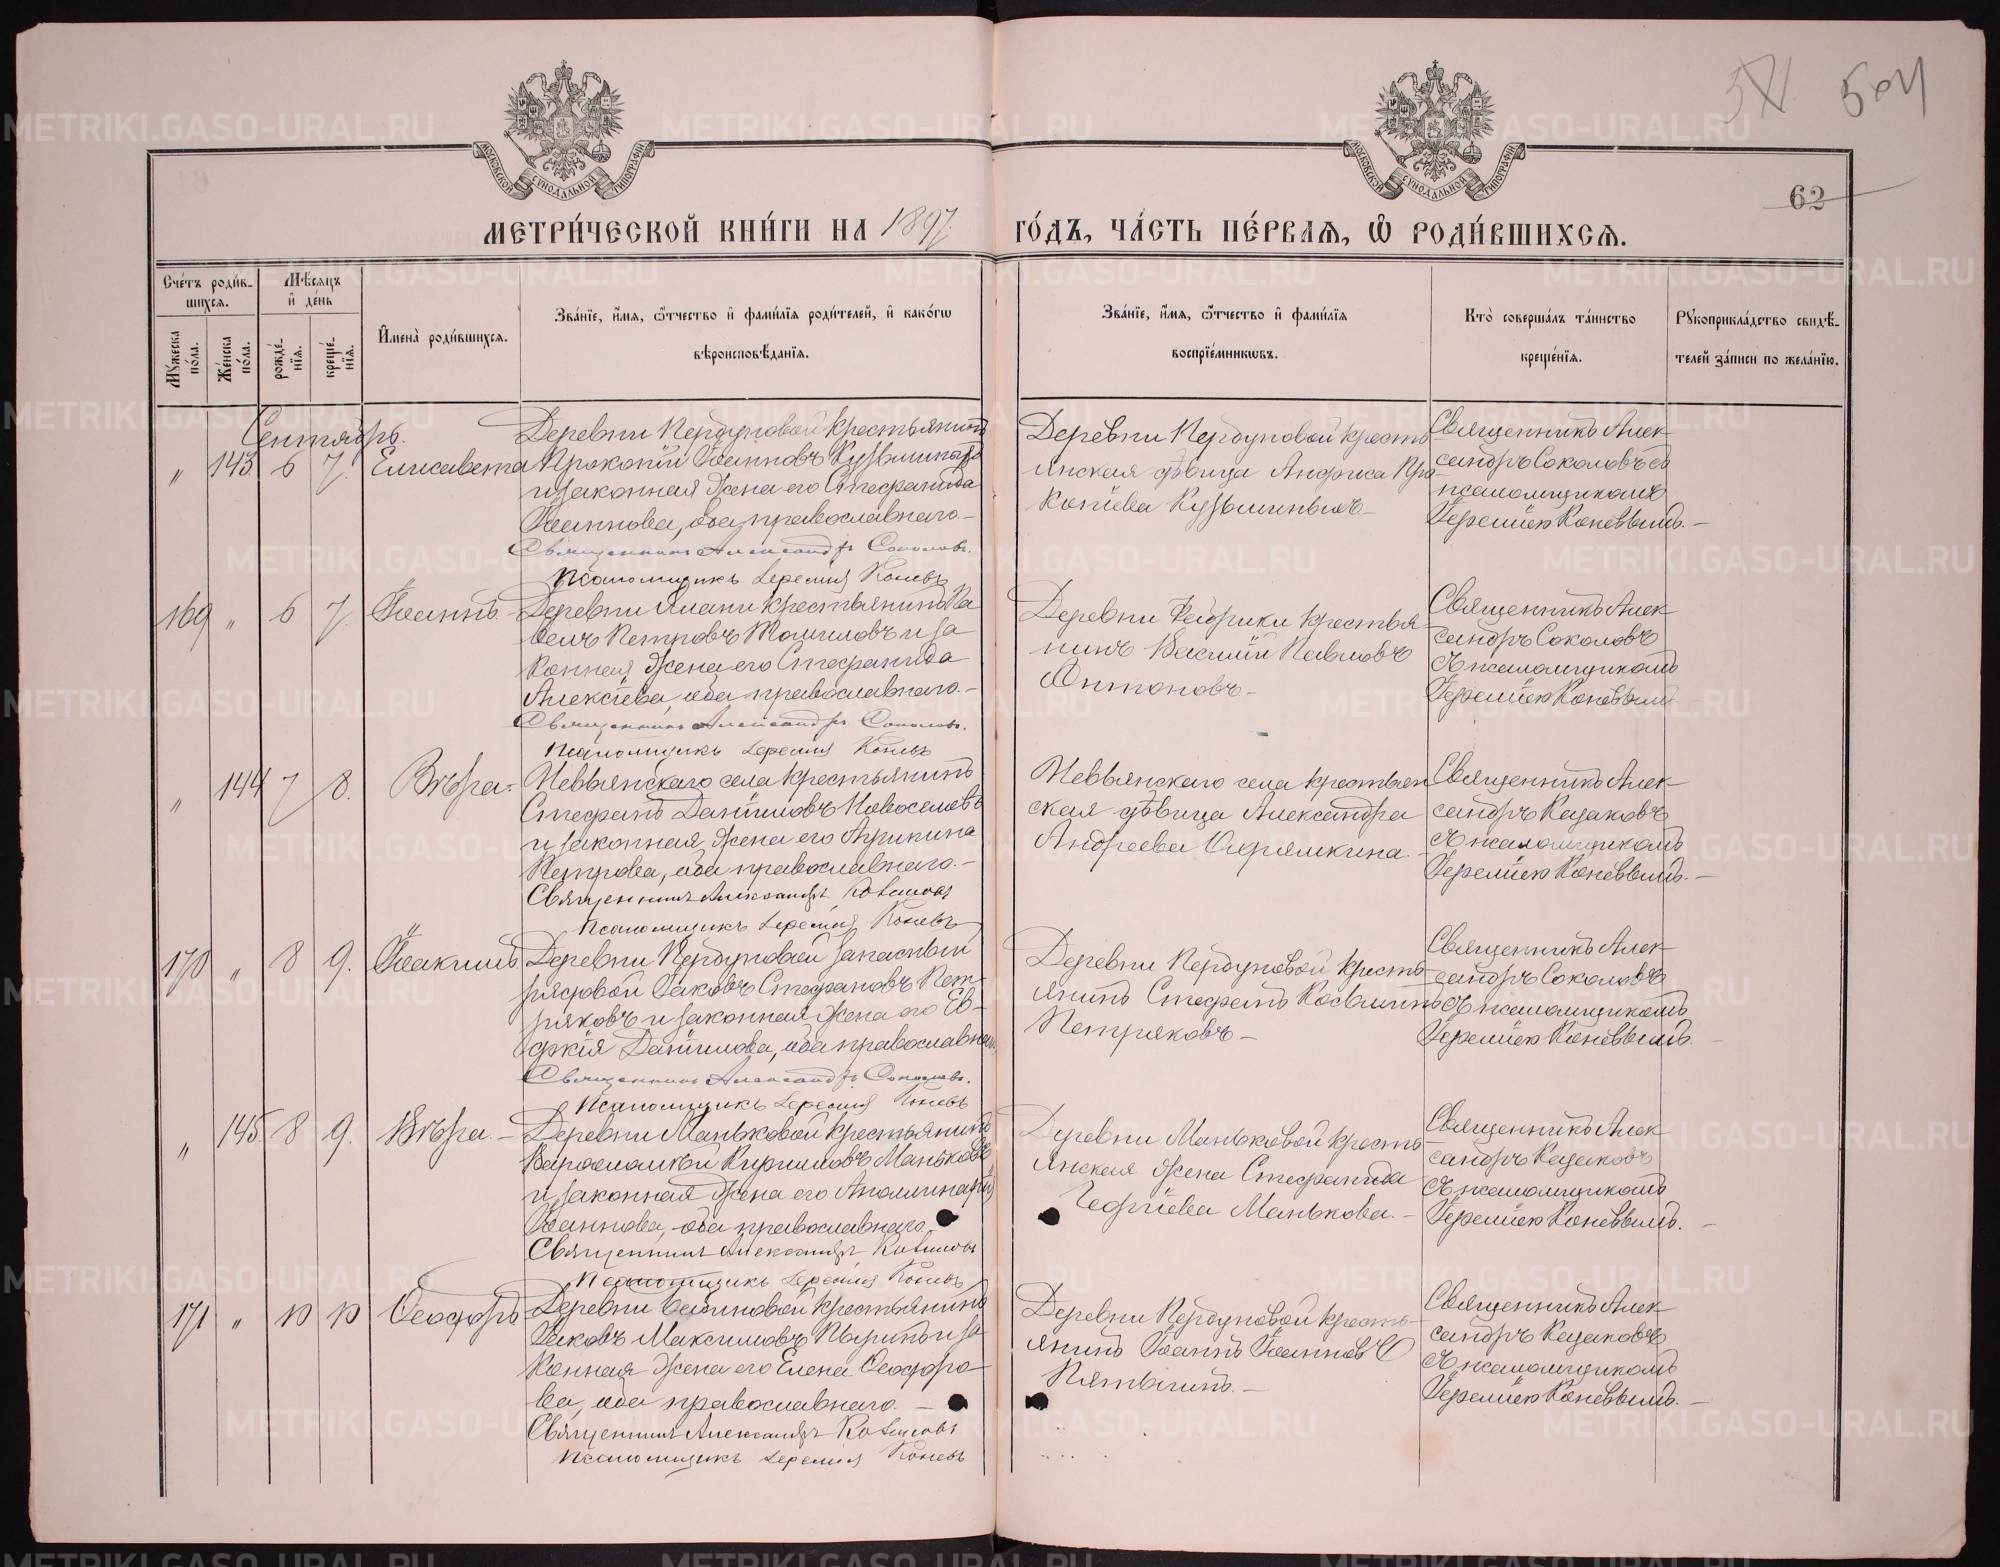 504
62
МОСКОВСКОЙ СѴНОДАЛЬНОЙ ТИПОГРАФІИ
МОСКОВСКОЙ СѴНОДАЛЬНОЙ ТИПОГРАФІИ
МЕТРИ́ЧЕСКОЙ КНИ́ГИ НА 1897
ГО́ДЪ, ЧА́СТЬ ПЕ́РВАЯ, Ѡ҆ РОДИ́ВШИХСЯ.
Сче́тъ роди́в-
шихся.
Мѣ́сяцъ
и҆ де́нь
Мꙋ́жеска
по́ла.
Же́нска
по́ла.
рожде́-
нїя.
креще́-
нїя.
И҆мена̀ роди́вшихся.
Зва́нїе, и҆́мя, ѻ҆́тчество и҆ фами́лїя роди́телей, и҆ како́гѡ
вѣроисповѣ́данїя.
Зва́нїе, и҆́мя, ѻ҆́тчество и҆ фами́лїя
воспрїе́мникѡвъ.
Кто̀ соверша́лъ та́инство
креще́нїя.
Рꙋкоприкла́дство свидѣ́-
телей за́писи по жела́нїю.
Сентябрь.
„ 143 6 7. Елисавета
Деревни Пердуновой крестьянинъ
Прокопій Іоанновъ Кузьминыхъ
и законная жена его Стефанида
Іоаннова, оба православнаго.-
Священникъ Александръ Соколовъ.
Псаломщикъ Іеремія Коневъ
Деревни Пердуновой кресть
янская дѣвица Анфиса Про
копіева Кузьминыхъ-
Священникъ Алек-
сандръ Соколовъ съ
псаломщикомъ
Іереміею Коневымъ.-
169 „ 6 7. Іоаннъ-
Деревни крестьянинъ Па
велъ Петровъ Томиловъ и за
конная жена его Стефанида
Алексіева, оба православнаго.-
Священникъ Александръ Соколовъ.
Псаломщикъ Іеремія Коневъ
Деревни крестья
нинъ Василій Павловъ
Антоновъ-
Священникъ Алек-
сандръ Соколовъ
съ псаломщикомъ
Іереміею Коневымъ
„ 144 7 8. Вѣра-
Невьянскаго села крестьянинъ
Стефанъ Даніиловъ Новоселовъ
и законная жена его Агрипина
Петрова, оба православнаго.-
Священникъ Александръ Казаковъ
Псаломщикъ Іеремія Коневъ
Невьянскаго села крестьян
ская дѣвица Александра
Андреева
Священникъ Алек-
сандръ Казаковъ
съ псаломщикомъ
Іереміею Коневымъ.-
170 „ 8 9. Іоакимъ
Деревни Пердуновой запасный
рядовой Іаковъ Стефановъ Пет-
ряковъ и законная жена его Ев-
докія Даніилова, оба православнаго
Священникъ Александръ Соколовъ.
Псаломщикъ Іеремія Коневъ
Деревни Пердуновой кресть-
янинъ Стефанъ Косьминъ
Петряковъ-
Священникъ Алек-
сандръ Соколовъ
съ псаломщикомъ
Іереміею Коневымъ.-
„ 145 8 9. Вѣра.-
Деревни Маньковой крестьянинъ
Варѳоломѣй Кирилловъ Маньковъ
и законная жена его Аполлинарія
Іоаннова, оба православнаго.
Священникъ Александръ Казаковъ
Псаломщикъ Іеремія Коневъ
Деревни Маньковой кресть-
янская жена Стефанида
Георгіева Манькова.-
Священникъ Алек-
сандръ Казаковъ
съ псаломщикомъ
Іереміею Коневымъ.-
171 „ 10 10 Ѳеодоръ
Деревни крестьянинъ
Іаковъ Максимовъ и за
конная жена его Елена Ѳеодоро-
ва, оба православнаго.-
Священникъ Александръ Казаковъ
Псаломщикъ Іеремія Коневъ
Деревни Пердуновой кресть-
янинъ Іоаннъ Іоанновъ
Пятыгинъ.-
Священникъ Алек-
сандръ Казаковъ
съ псаломщикомъ
Іереміею Коневымъ.-
METRIKI.GASO-URAL.RU